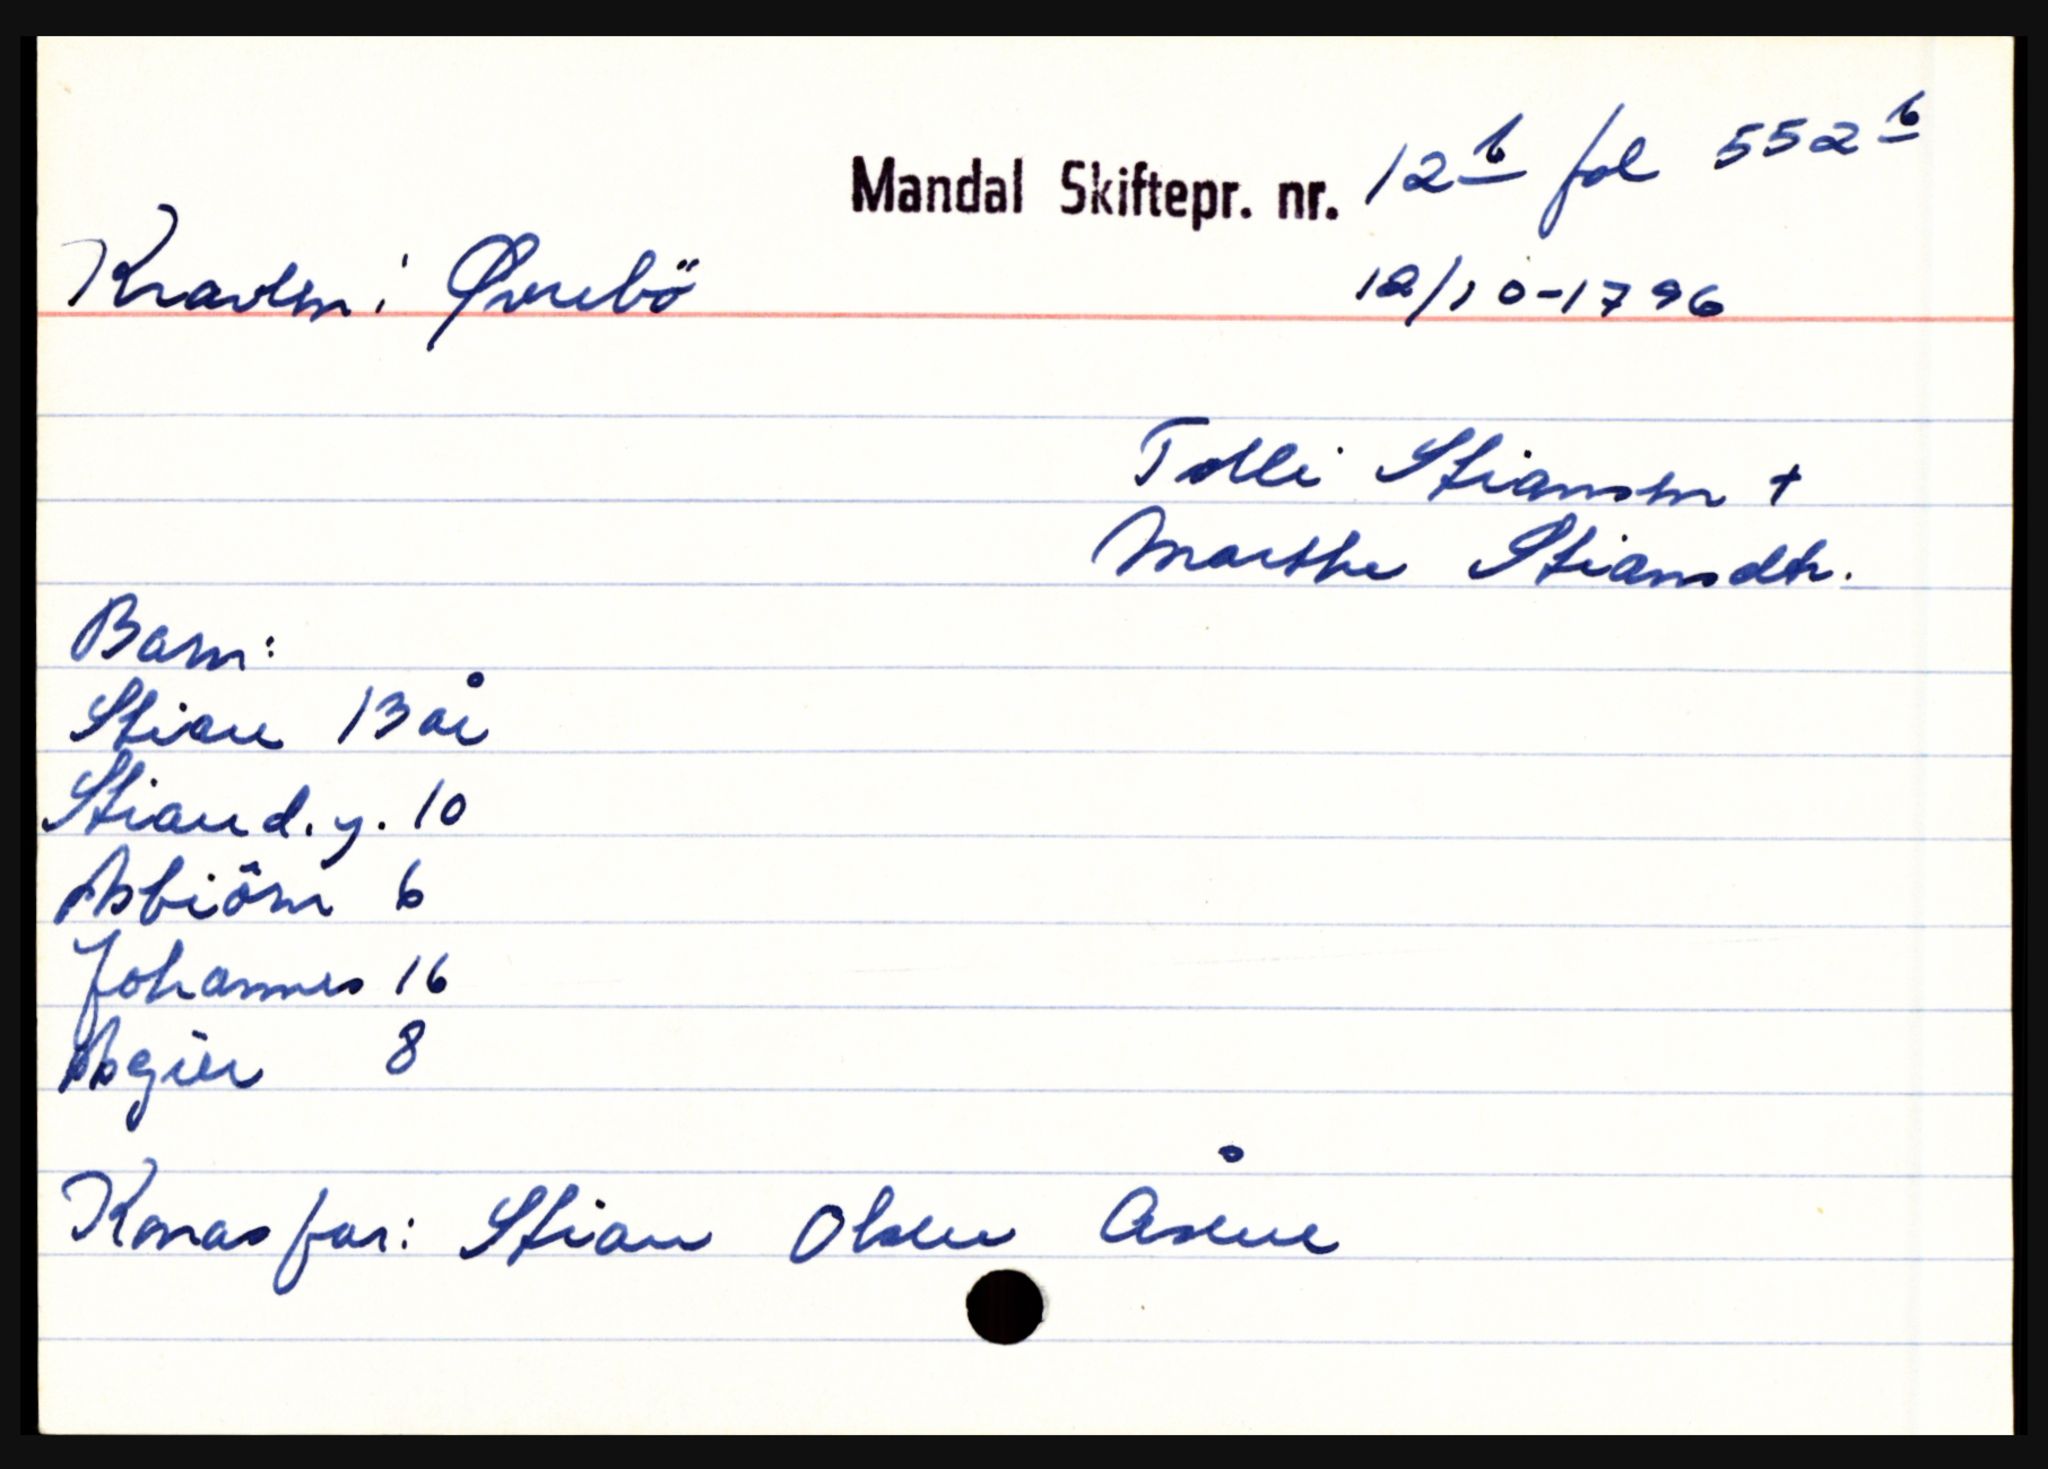 Mandal Skiftepr. nr. 12b fol 552b
Kravlen i Øvrebö 12/10-1796
Tolli Stiansen +
Marthe Stiansdtr.
Barn:
Stian 13 år
Stian d. y. 10
Asbiörn 6
Johannes 16
Asgier 8
Konas far: Stian Olsen Åsene